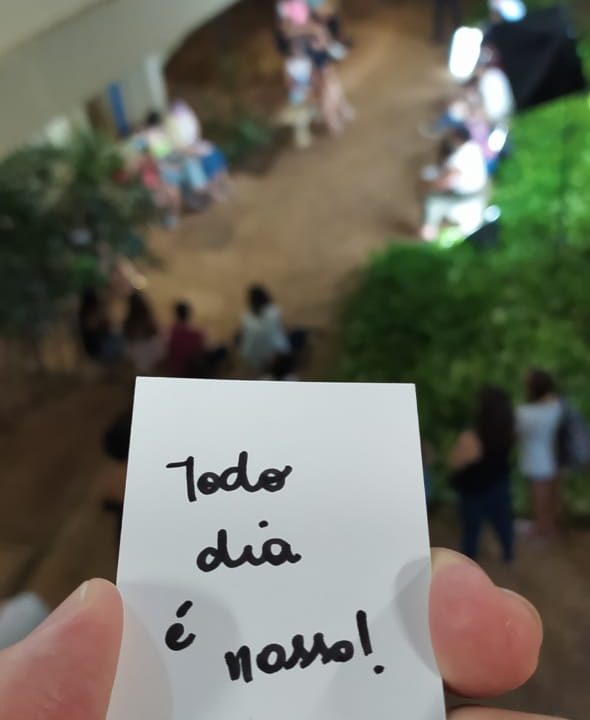 Todo
dia
é nosso!